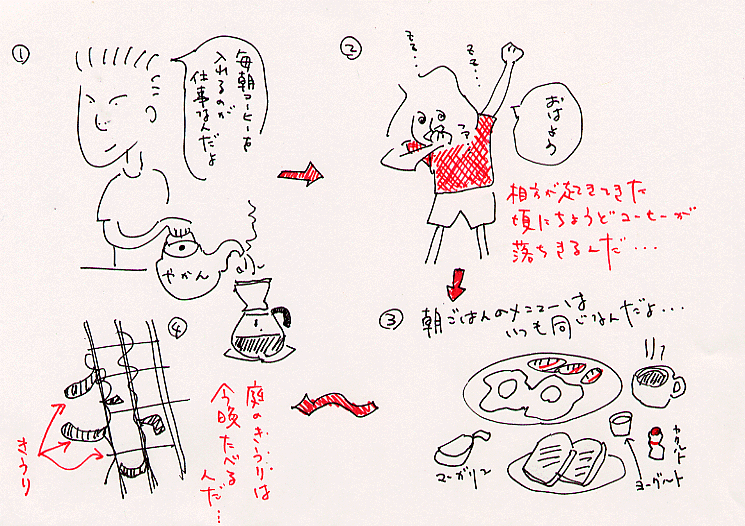 ①
毎朝コーヒーを
入れるのが
仕事なんだよ
やかん
②
zzz...
zzz...
ファ〜
おはよう
相方が起きてきた
頃にちょうどコーヒーが
落ちきるんだ・・・
③
朝ごはんのメニューは
いつも同じなんだよ・・・
マーガリン
ヨーグルト
ヤクルト
④
庭のきうりは
今晩たべる
んだ・・・
きうり